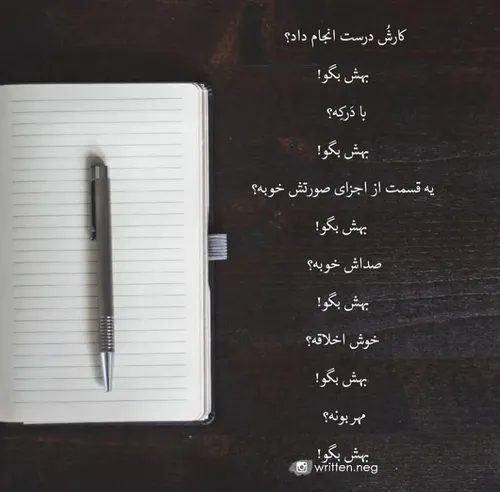 کارشُ درست انجام داد؟
بهش بگو!
با دَرکِه؟
بهش بگو!
یه قسمت از اجزای صورتش خوبه؟
بهش بگو!
صداش خوبه؟
بهش بگو!
خوش اخلاقه؟
بهش بگو!
مهربونه؟
بهش بگو!
written.neg